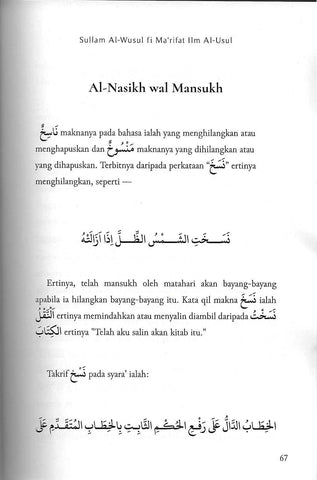 Sullam Al-Wusul fi Ma'rifat Ilm Al-Usul
Al-Nasikh wal Mansukh
نَاسِخٌ maknanya pada bahasa ialah yang menghilangkan atau
menghapuskan dan مَنْسُوخٌ maknanya yang dihilangkan atau
yang dihapuskan. Terbitnya daripada perkataan "نَسَخَ" ertinya
menghilangkan, seperti —
نَسَخَتِ الشَّمْسُ الظِّلَّ إِذَا أَزَالَتْهُ
Ertinya, telah mansukh oleh matahari akan bayang-bayang
apabila ia hilangkan bayang-bayang itu. Kata qil makna نَسَخَ ialah
النَّقْلُ ertinya memindahkan atau menyalin diambil daripada نَسَخْتُ
الكِتَابَ ertinya "Telah aku salin akan kitab itu."
Takrif نَسْخ pada syara' ialah:
الخِطَابُ الدَّالُّ عَلَى رَفْعِ الحُكْمِ الثَّابِتِ بِالخِطَابِ المُتَقَدِّمِ عَلَى
67